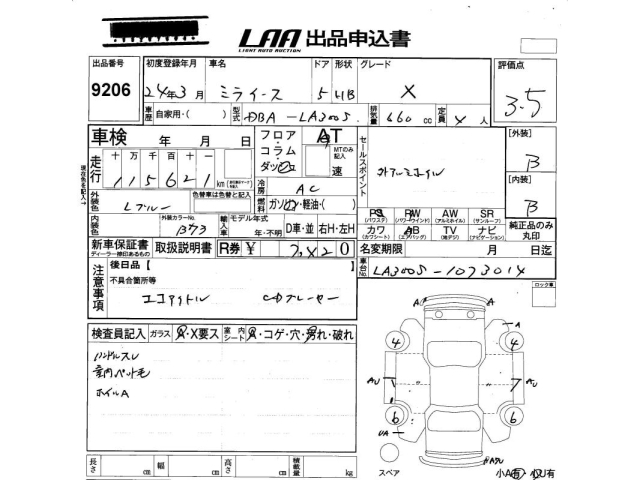 LAA 出品申込書
LIGHT AUTO AUCTION
出品番号 初度登録年月 車名 ドア 形状 グレード 評価点
9206 24年3月 ミライース 5 HB X 3.5
車歴 自家用・( ) 型式 DBA - LA300S 排気量 660 cc 定員 4 人
車検 年 月 日
フロア・コラム・ダッシュ AT MTのみ記入 速
セールスポイント 社外アルミホイル
[外装] B
[内装] B
走行 十 万 千 百 十 一
115621 km
現在色を記入
冷房 AC
外装色 Lブルー 色替車は色替と記入
燃料 ガソリン・軽油・( )
PS (パワステ) PW (パワーウインド) AW (アルミホイル) SR (サンルーフ)
カワ (カワシート) AB (エアバッグ) TV (地デジ) ナビ (ナビゲーション)
純正品のみ丸印
内装色 外装カラーNo. B73 輸入車 モデル年式 年・不明 D車・並 右H・左H
新車保証書 ディーラー捺印あるもの 取扱説明書 R券 ¥ 7420
名変期限 月 日迄
車台No. LA300S-1073014
ロック車
注意事項 後日品【
不具合箇所等
エコアイドル CDプレーヤー
検査員記入 ガラス A・X要ス 室内シート A・コゲ・穴・汚れ・破れ
ハンドルスレ
室内ペット毛
ホイルA
A A
A
4 4
AU
6 6
UA
スペア
小A有・小U有
長さ cm 幅 cm 高さ cm 積載量 kg